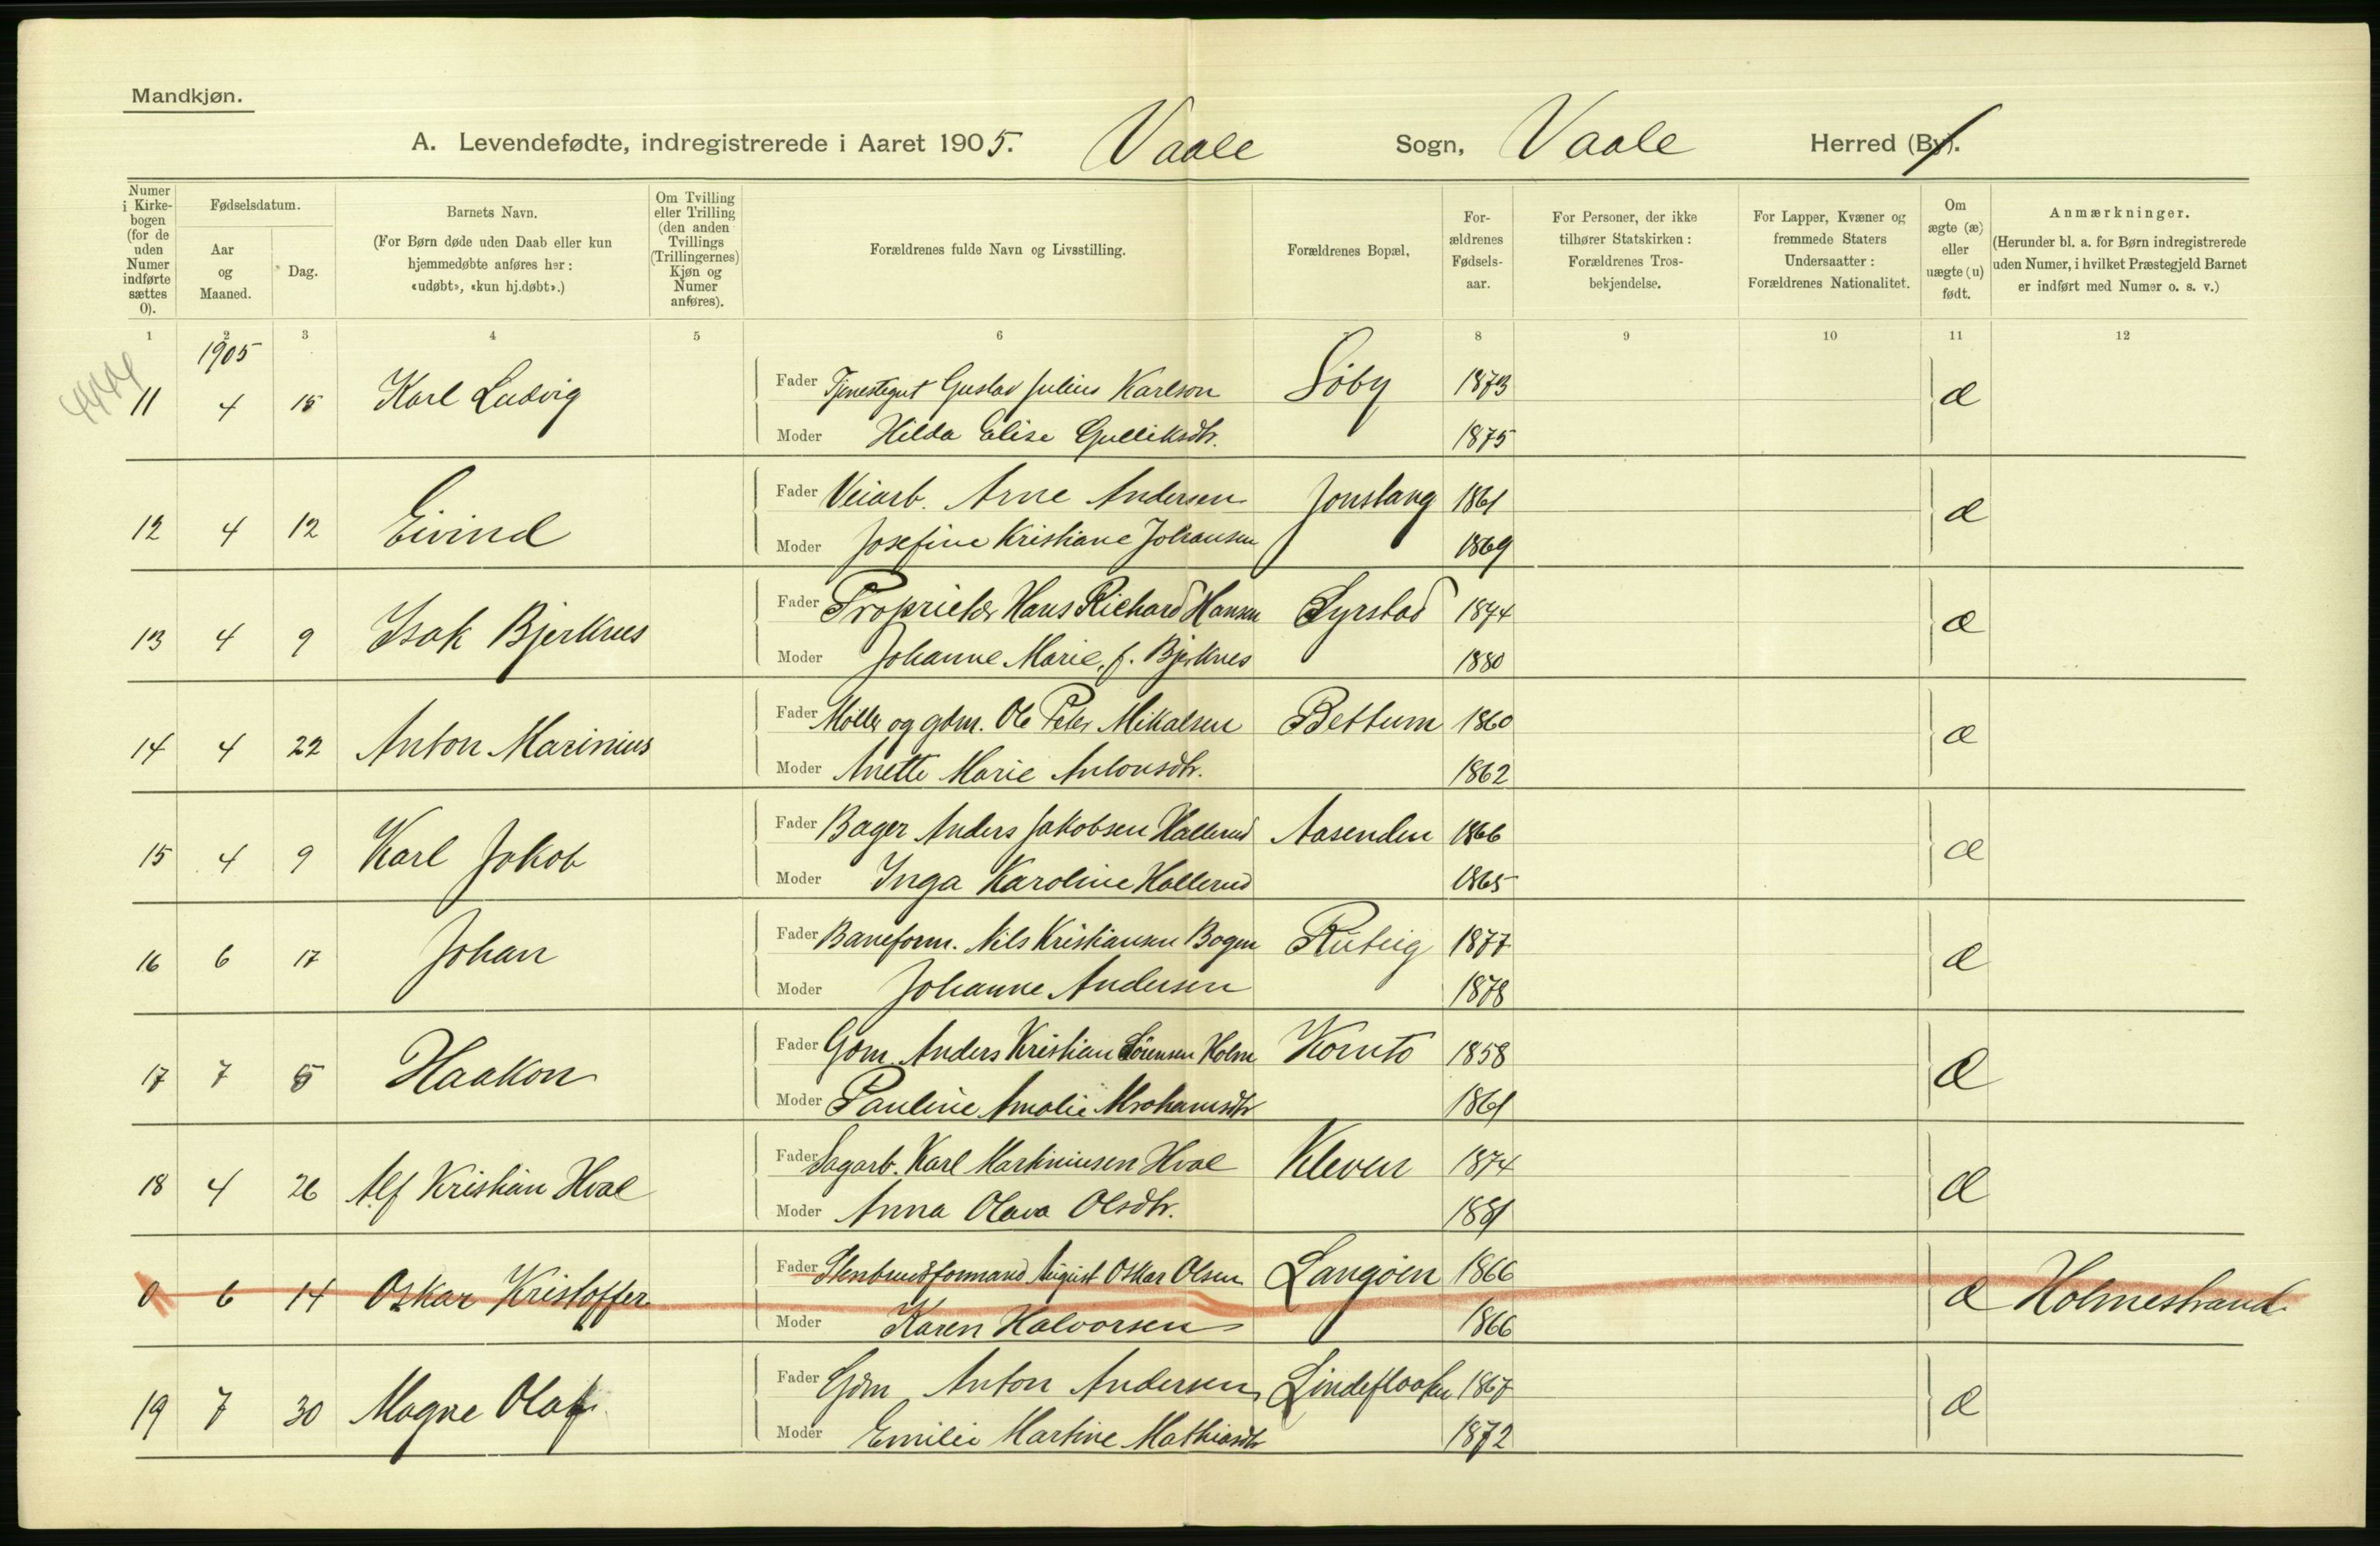 Mandkjøn.
A. Levendefødte, indregistrerede i Aaret 1905. Vaale Sogn, Vaale Herred (By).
Numer i Kirkebogen (for de uden Numer indførte sættes 0).
Fødselsdatum.
Aar og Maaned.
Dag.
Barnets Navn.
(For Børn døde uden Daab eller kun hjemmedøbte anføres her: «udøbt», «kun hj.døbt».)
Om Tvilling eller Trilling (den anden Tvillings (Trillingernes) Kjøn og Numer anføres).
Forældrenes fulde Navn og Livsstilling.
Forældrenes Bopæl,
Forældrenes Fødselsaar.
For Personer, der ikke tilhører Statskirken: Forældrenes Trosbekjendelse.
For Lapper, Kvæner og fremmede Staters Undersaatter: Forældrenes Nationalitet.
Om ægte (æ) eller uægte (u) født.
Anmærkninger.
(Herunder bl. a. for Børn indregistrerede uden Numer, i hvilket Præstegjeld Barnet er indført med Numer o. s. v.)
1 2 3 4 5 6 7 8 9 10 11 12
1905
11 4 15 Karl Ludvig Fader Tjenestegut Gustav Julius Karlson Söby 1873 æ
Moder Hilda Elise Gulliksdtr. 1875
12 4 12 Eivind Fader Veiarb. Arne Andersen Jonslang 1861 æ
Moder Josefine Kristiane Johansen 1869
13 4 9 Isak Bjerknes Fader Proprietær Hans Richard Hansen Syrstad 1874 æ
Moder Johanne Marie, f. Bjerknes 1880
14 4 22 Anton Marinius Fader Møller og gdm. Ole Peter Mikalsen Bettum 1860 æ
Moder Anette Marie Antonsdtr. 1862
15 4 9 Karl Jakob Fader Bager Anders Jakobsen Hallerud Aasenden 1866 æ
Moder Inga Karoline Hallerud 1865
16 6 17 Johan Fader Baneform. Nils Kristiansen Bogen 1877 æ
Moder Johanne Andersen 1878
17 7 5 Haakon Fader Gdm. Anders Kristian Sörensen Holm 1858 æ
Moder Pauline Amalie Abrahamsdtr 1861
18 4 26 Alf Kristian Hval Fader Sagarb. Karl Martiniusen Hval Kleven 1874 æ
Moder Anna Olava Olsdtr. 1881
0 6 14 Oskar Kristoffer Fader Stenbrudsformand August Oskar Olsen Langöen 1866 æ Holmestrand
Moder Karen Halvorsen 1866
19 7 30 Magne Olaf Fader Gdm Anton Andersen Lindeflaaten 1867 æ
Moder Emilie Martine Mathiasdtr 1872